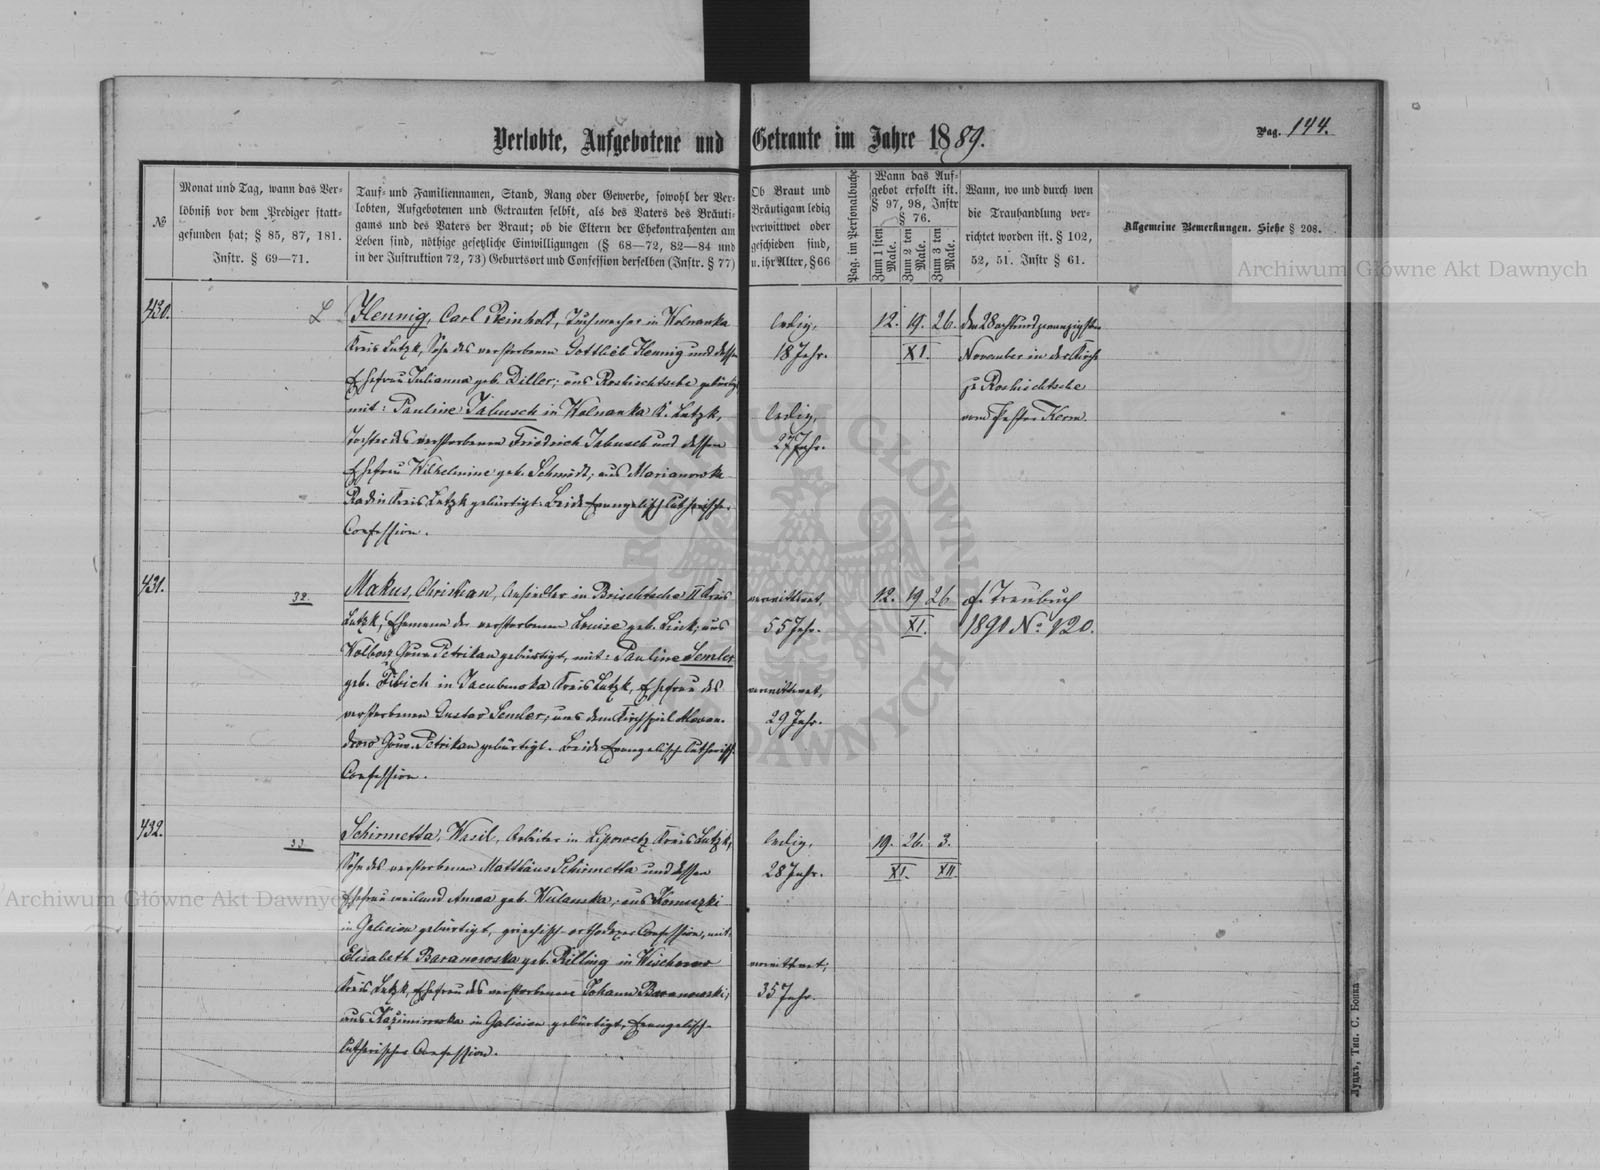 Verlobte, Aufgebotene und Getraute im Jahre 1889.
Pag. 144.
№
Monat und Tag, wann das Ver-
löbniß vor dem Prediger statt-
gefunden hat; § 85, 87, 181.
Instr. § 69—71.
Tauf- und Familiennamen, Stand, Rang oder Gewerbe, sowohl der Ver-
lobten, Aufgebotenen und Getrauten selbst, als des Vaters des Bräuti-
gams und des Vaters der Braut; ob die Eltern der Ehekontrahenten am
Leben sind, nöthige gesetzliche Einwilligungen (§ 68—72, 82—84 und
in der Justruktion 72, 73) Geburtsort und Confession derselben (Instr. § 77)
Ob Braut und
Bräutigam ledig
verwittwet oder
geschieden sind,
u. ihr Alter, § 66
Pag. im Personalbuche
Wann das Auf-
gebot erfolkt ist.
§ 97, 98, Instr
§ 76.
Zum 1 sten Male.
Zum 2 ten Male.
Zum 3 ten Male.
Wann, wo und durch wen
die Trauhandlung ver-
richtet worden ist. § 102,
52, 51. Instr § 61.
Allgemeine Bemerkungen. Siehe § 208.
430.
Hennig, Carl Reinhold, Tuchmacher in Wolnanka
Kreis Lutzk, Sohn des verstorbenen Gottlieb Hennig und dessen
Ehefrau Julianna geb. Diller; aus Roshischtsche gebürtig
mit: Pauline Jabusch in Wolnanka K. Lutzk,
Tochter des verstorbenen Friedrich Jabusch und dessen
Ehefrau Wilhelmine geb. Schmidt; aus Marianowka
Radin Kreis Lutzk gebürtigt. Beide Evangelisch lutherischer
Confession.
ledig,
18 Jahr.
ledig,
27 Jahr.
12. 19. 26.
XI.
den 28 achtundzwanzigsten
November in der Kirche
zu Roshischtsche
vom Pastor Kern.
431.
32
Makus, Christian, Ansiedler in Brischtsche II Kreis
Lutzk, Ehemann der verstorbenen Louise geb. Link; aus
Wolborz Gouv. Petrikau gebürtigt, mit: Pauline Semler
geb. Fibich in Jacubinowka Kreis Lutzk, Ehefrau des
verstorbenen Gustav Semler; aus dem Kirchspiel Alexan-
drow Gouv. Petrikau gebürtigt. Beide Evangelisch lutherisch.
Confession.
verwittwet,
55 Jahr.
verwittwet,
29 Jahr.
12. 19 26.
XI.
cf. Traubuch
1890 No 120.
432.
33
Schirmetta, Wasil, Arbeiter in Lipowetz Kreis Lutzk,
Sohn des verstorbenen Matthäus Schirmetta und dessen
Ehefrau weiland Anna geb. Wulanska; aus Komuszki
in Galicien gebürtigt, griechisch-orthodoxer Confession, mit:
Elisabeth Baranowska geb. Rilling in Wischnewo
Kreis Lutzk, Ehefrau des verstorbenen Johann Baranowski;
aus Kazimirowka in Galicien gebürtigt, Evangelisch-
lutherischer Confession.
ledig,
28 Jahr.
verwittwet;
35 Jahr.
19. 26. 3.
XI. XII.
Луцкъ, Тип. С. Бонка
Archiwum Główne Akt Dawnych
Archiwum Główne Akt Dawnych